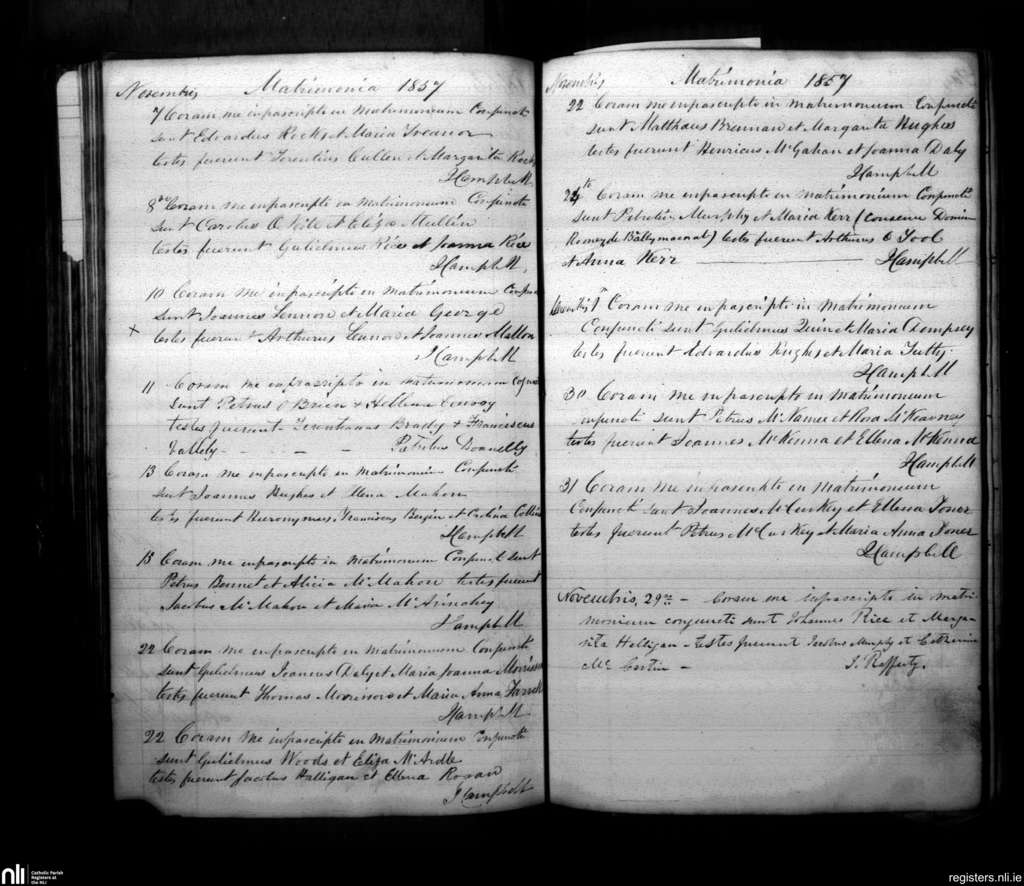 Novembris Matrimonia 1857
7 Coram me infrascripto in Matrimonium Conjuncti
sunt Edvardus Rocks et Maria
testes fuerunt Terentius Cullen et Margarita Rocks
JCampbell
8 Coram me infrascripto in Matrimonium Conjuncti
sunt Carolus O Nile et Eliza Mullin
testes fuerunt Gulielmus Rice et Joanna Rice
JCampbell
10 Coram me infrascripto in matrimonium
sunt Joannes Lennon et Maria George
× testes fuerunt Arthurus et Joannes Mallon
JCampbell
11 Coram me infrascripto in matrimonium
sunt Petrus O'Brien & Hellena Conroy
testes fuerunt Brady & Franciscus
Vallely Donnelly
13 Coram me infrascripto in Matrimonium Conjuncti
sunt Joannes Hughes et Ellena Mahon
testes fuerunt Hieronymus Franciscus Bergin et
JCampbell
15 Coram me infrascripto in Matrimonium sunt
Petrus Bennet et Alicia McMahon testes fuerunt
Jacobus McMahon et Maria
JCampbell
22 Coram me infrascripto in Matrimonium Conjuncti
sunt Gulielmus Joannes Daly et Maria Joanna
testes fuerunt Thomas et Maria Anna
JCampbell
22 Coram me infrascripto in Matrimonium Conjuncti
sunt Gulielmus Woods et Eliza McArdle
testes fuerunt Jacobus Halligan et Ellena
JCampbell
Novembris Matrimonia 1857
22 Coram me infrascripto in Matrimonium Conjuncti
sunt Matthaus Brennan et Margarita Hughes
testes fuerunt Henricus McGahan et Joanna Daly
JCampbell
24th Coram me infrascripto in Matrimonium Conjuncti
sunt Murphy et Maria Kerr (
de Ballymacnab) testes fuerunt Arthurus O Tool
et Anna Kerr JCampbell
Coram me infrascripto in Matrimonium
Conjuncti sunt Gulielmus Quin et Maria Dempsey
testes fuerunt Edvardus Hughes et Maria
JCampbell
30 Coram me infrascripto in Matrimonium
sunt Petrus McNamee et Rosa McKearney
testes fuerunt Joannes McKenna et Ellena McKenna
JCampbell
31 Coram me infrascripto in Matrimonium
Conjuncti sunt Joannes McCuskey et Ellena Toner
testes fuerunt Petrus McCuskey et Maria Anna Toner
JCampbell
Novembris, 29 – Coram me infrascripto in matri
monium conjuncti sunt Johannes Rice et Marga
rita Halligan – testes fuerunt Jacobus Murphy et
J. Rafferty.
nli Catholic Parish
Registers at
the NLI
registers.nli.ie